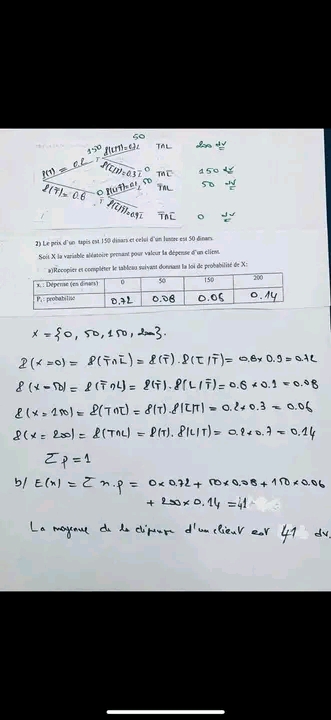 50
150 p(L/T)=0.7 L T∩L 200 dt
p(T) = 0.2 T p(L̄/T)=0.3 L̄ 0 T∩L̄ 150 dt
p(T̄)= 0.8 0 p(L/T̄)=0.1 50 T̄∩L 50 dt
p(L̄/T̄)=0.9 L̄ T̄∩L̄ 0 dt
2) Le prix d'un tapis est 150 dinars et celui d'un lustre est 50 dinars.
Soit X la variable aléatoire prenant pour valeur la dépense d'un client.
a)Recopier et compléter le tableau suivant donnant la loi de probabilité de X:
xᵢ : Dépense (en dinars) 0 50 150 200
Pᵢ : probabilité 0.72 0.08 0.06 0.14
X = {0, 50, 150, 200}.
P(X=0) = P(T̄∩L̄) = P(T̄).P(L̄/T̄)= 0.8x0.9=0.72
P(X=50) = P(T̄∩L) = P(T̄).P(L/T̄)= 0.8 x 0.1 = 0.08
P(X=150) = P(T∩L̄) = P(T).P(L̄/T)= 0.2x0.3 = 0.06
P(X=200) = P(T∩L) = P(T).P(L/T) = 0.2x0.7 = 0.14
Σp=1
b/ E(x) = Σ x.p = 0x0.72 + 50x0.08 + 150x0.06
+ 200x0.14 =41
La moyenne de la dépense d'un client est 41 dt.